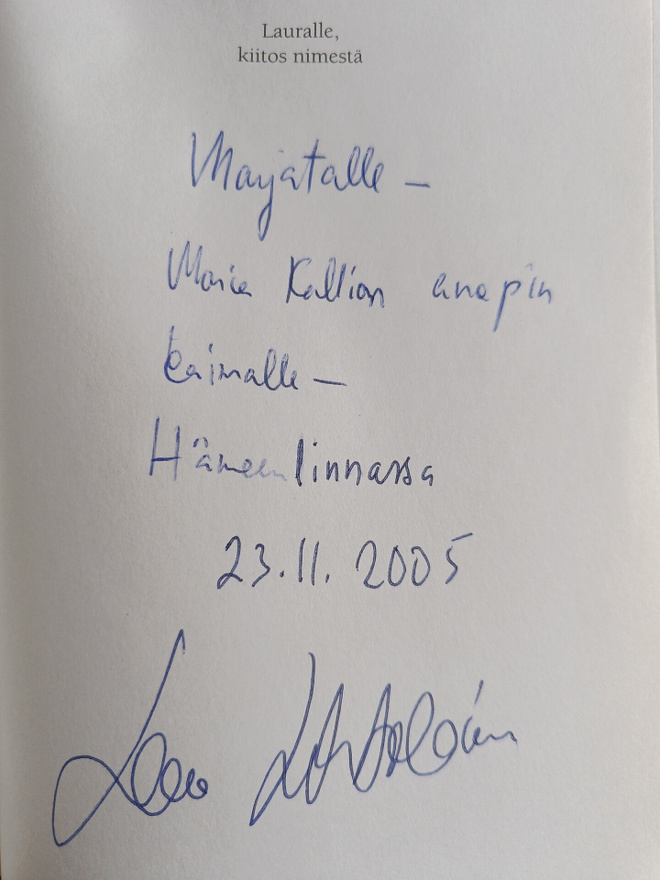 Lauralle,
kiitos nimestä
Marjatalle –
Maria Kallion anopin
kaimalle –
Hämeenlinnassa
23.11. 2005
Leena Lehtolainen